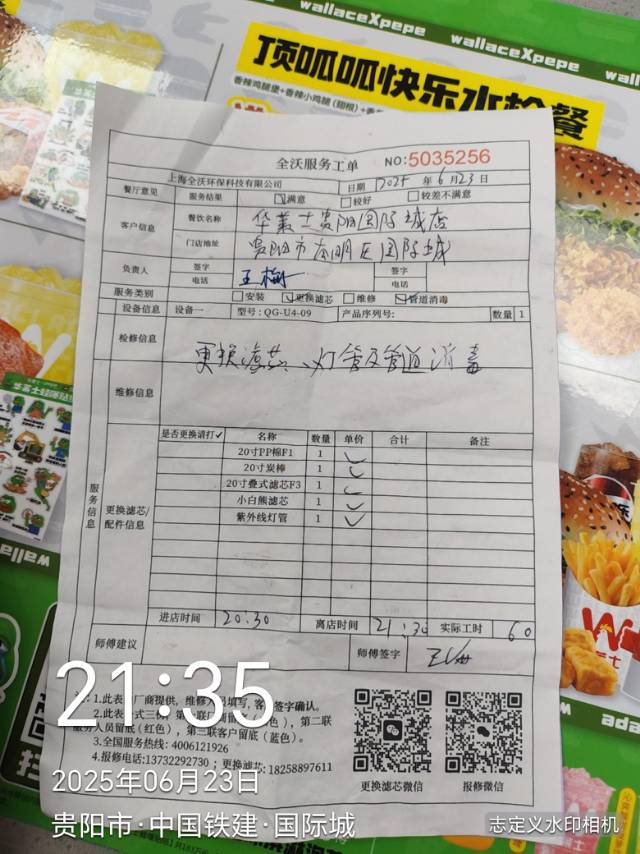 wallaceXpepe
wallaceXpepe
wallaceXpepe
顶呱呱快乐水枪餐
全沃服务工单 NO:5035256
上海全沃环保科技有限公司 日期 2025 年 6 月 23 日
餐厅意见 服务结果 ☑满意 □较好 □较差不满意
客户信息 餐饮名称 华莱士贵阳国际城店
门店地址 贵阳市南明区国际城
负责人 签字 电话 王梅 签字 电话
服务类别 □安装 ☑更换滤芯 □维修 ☑管道消毒
设备信息 设备一 型号:QG-U4-09 产品序列号: 数量 1
检修信息 更换滤芯、灯管及管道消毒
维修信息
服务信息
更换滤芯/配件信息
是否更换请打✓ 名称 数量 单价 合计 备注
20寸PP棉F1 1 ✓
20寸炭棒 1 ✓
20寸叠式滤芯F3 1 ✓
小白熊滤芯 1 ✓
紫外线灯管 1 ✓
进店时间 20:30 离店时间 21:30 实际工时 60
师傅建议 师傅签字
注:1.此表由厂商提供,维修人员填写,客户签字确认。
2.此表一式三份,第一联厂商留底(白色),第二联
服务人员留底(红色),第三联客户留底(蓝色)。
3.全国服务热线:4006121926
4.报修电话:13732292730;更换滤芯:18258897611
更换滤芯微信 报修微信
21:35
2025年06月23日
贵阳市·中国铁建·国际城
志定义水印相机